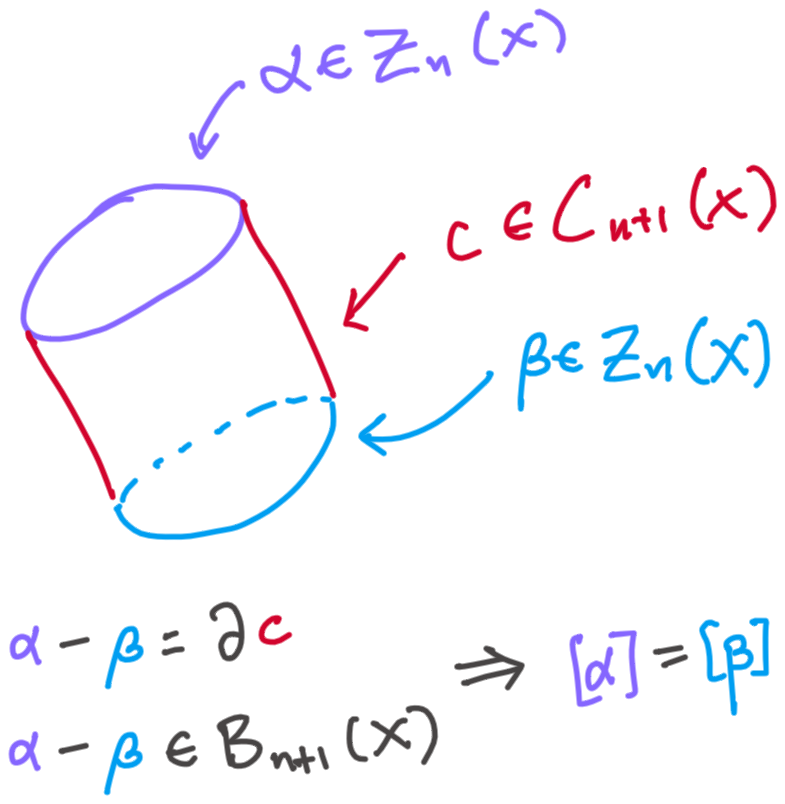 α ∈ Zₙ(X)
c ∈ Cₙ₊₁(X)
β ∈ Zₙ(X)
α − β = ∂c
⇒ [α] = [β]
α − β ∈ Bₙ₊₁(X)